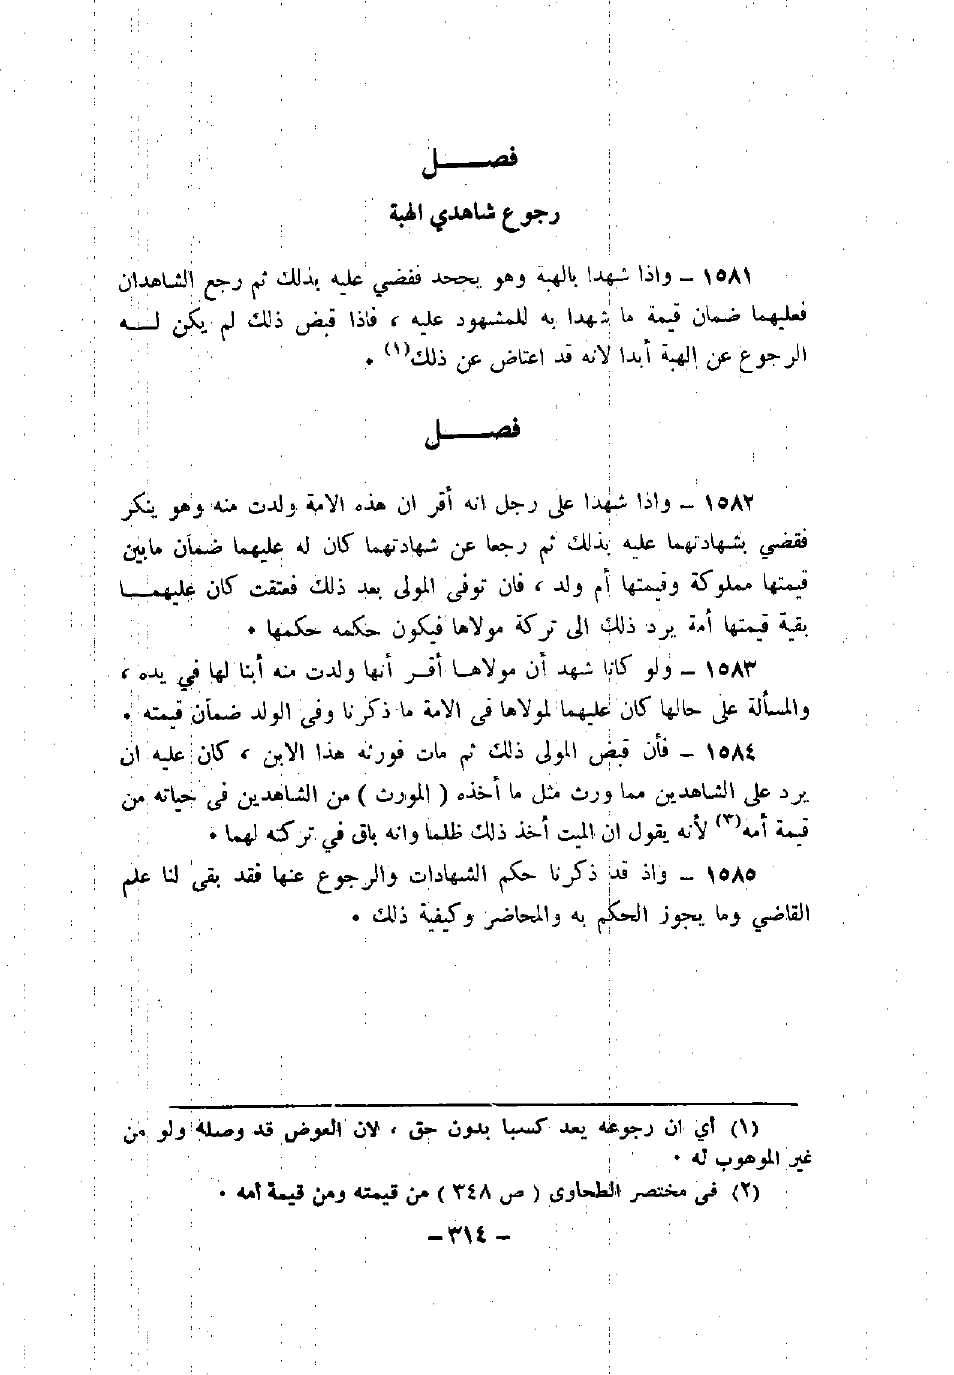 فصــــــل
رجوع شاهدي الهبة
١٥٨١ – واذا شهدا بالهبة وهو يجحد فقضي عليه بذلك ثم رجع الشاهدان
فعليهما ضمان قيمة ما شهدا به للمشهود عليه ، فاذا قبض ذلك لم يكن لــه
الرجوع عن الهبة أبدا لانه قد اعتاض عن ذلك(١) .
فصــــــل
١٥٨٢ – واذا شهدا على رجل انه أقر ان هذه الامة ولدت منه وهو ينكر
فقضي بشهادتهما عليه بذلك ثم رجعا عن شهادتهما كان له عليهما ضمان مابين
قيمتها مملوكة وقيمتها أم ولد ، فان توفى المولى بعد ذلك فعتقت كان عليهمــا
بقية قيمتها أمة يرد ذلك الى تركة مولاها فيكون حكمه حكمها .
١٥٨٣ – ولو كانا شهد أن مولاهــا أقــر أنها ولدت منه أبنا لها في يده ،
والمسألة على حالها كان عليهما لمولاها فى الامة ما ذكرنا وفى الولد ضمان قيمته .
١٥٨٤ – فأن قبض المولى ذلك ثم مات فورثه هذا الابن ، كان عليه ان
يرد على الشاهدين مما ورث مثل ما أخذه ( المورث ) من الشاهدين فى حياته من
قيمة أمه(٣) لأنه يقول ان الميت أخذ ذلك ظلما وانه باق في تركته لهما .
١٥٨٥ – واذ قد ذكرنا حكم الشهادات والرجوع عنها فقد بقى لنا علم
القاضي وما يجوز الحكم به والمحاضر وكيفية ذلك .
(١) أي ان رجوعه يعد كسبا بدون حق ، لان العوض قد وصله ولو من
غير الموهوب له .
(٢) فى مختصر الطحاوى ( ص ٣٤٨ ) من قيمته ومن قيمة أمه .
– ٣١٤ –